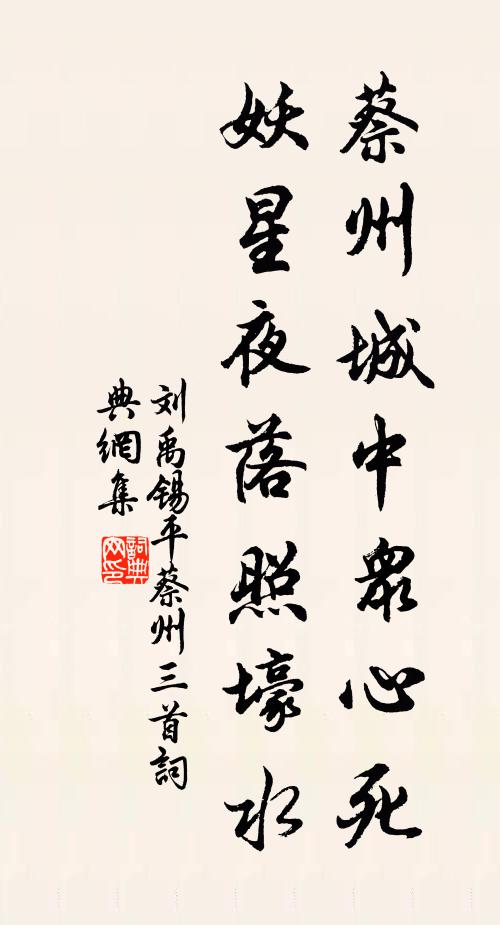 蔡州城中眾心死
妖星夜落照壕水
刘禹锡平蔡州三首詞
典網集
詞典網印